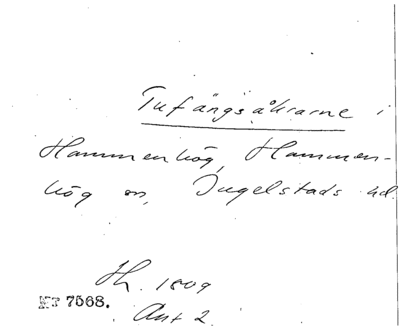 Tufångsåkrarne i
Hammenhög, Hammen-
hög sn, Ingelstads hd.
Sk. 1809
Nr 7568.
Akt 2